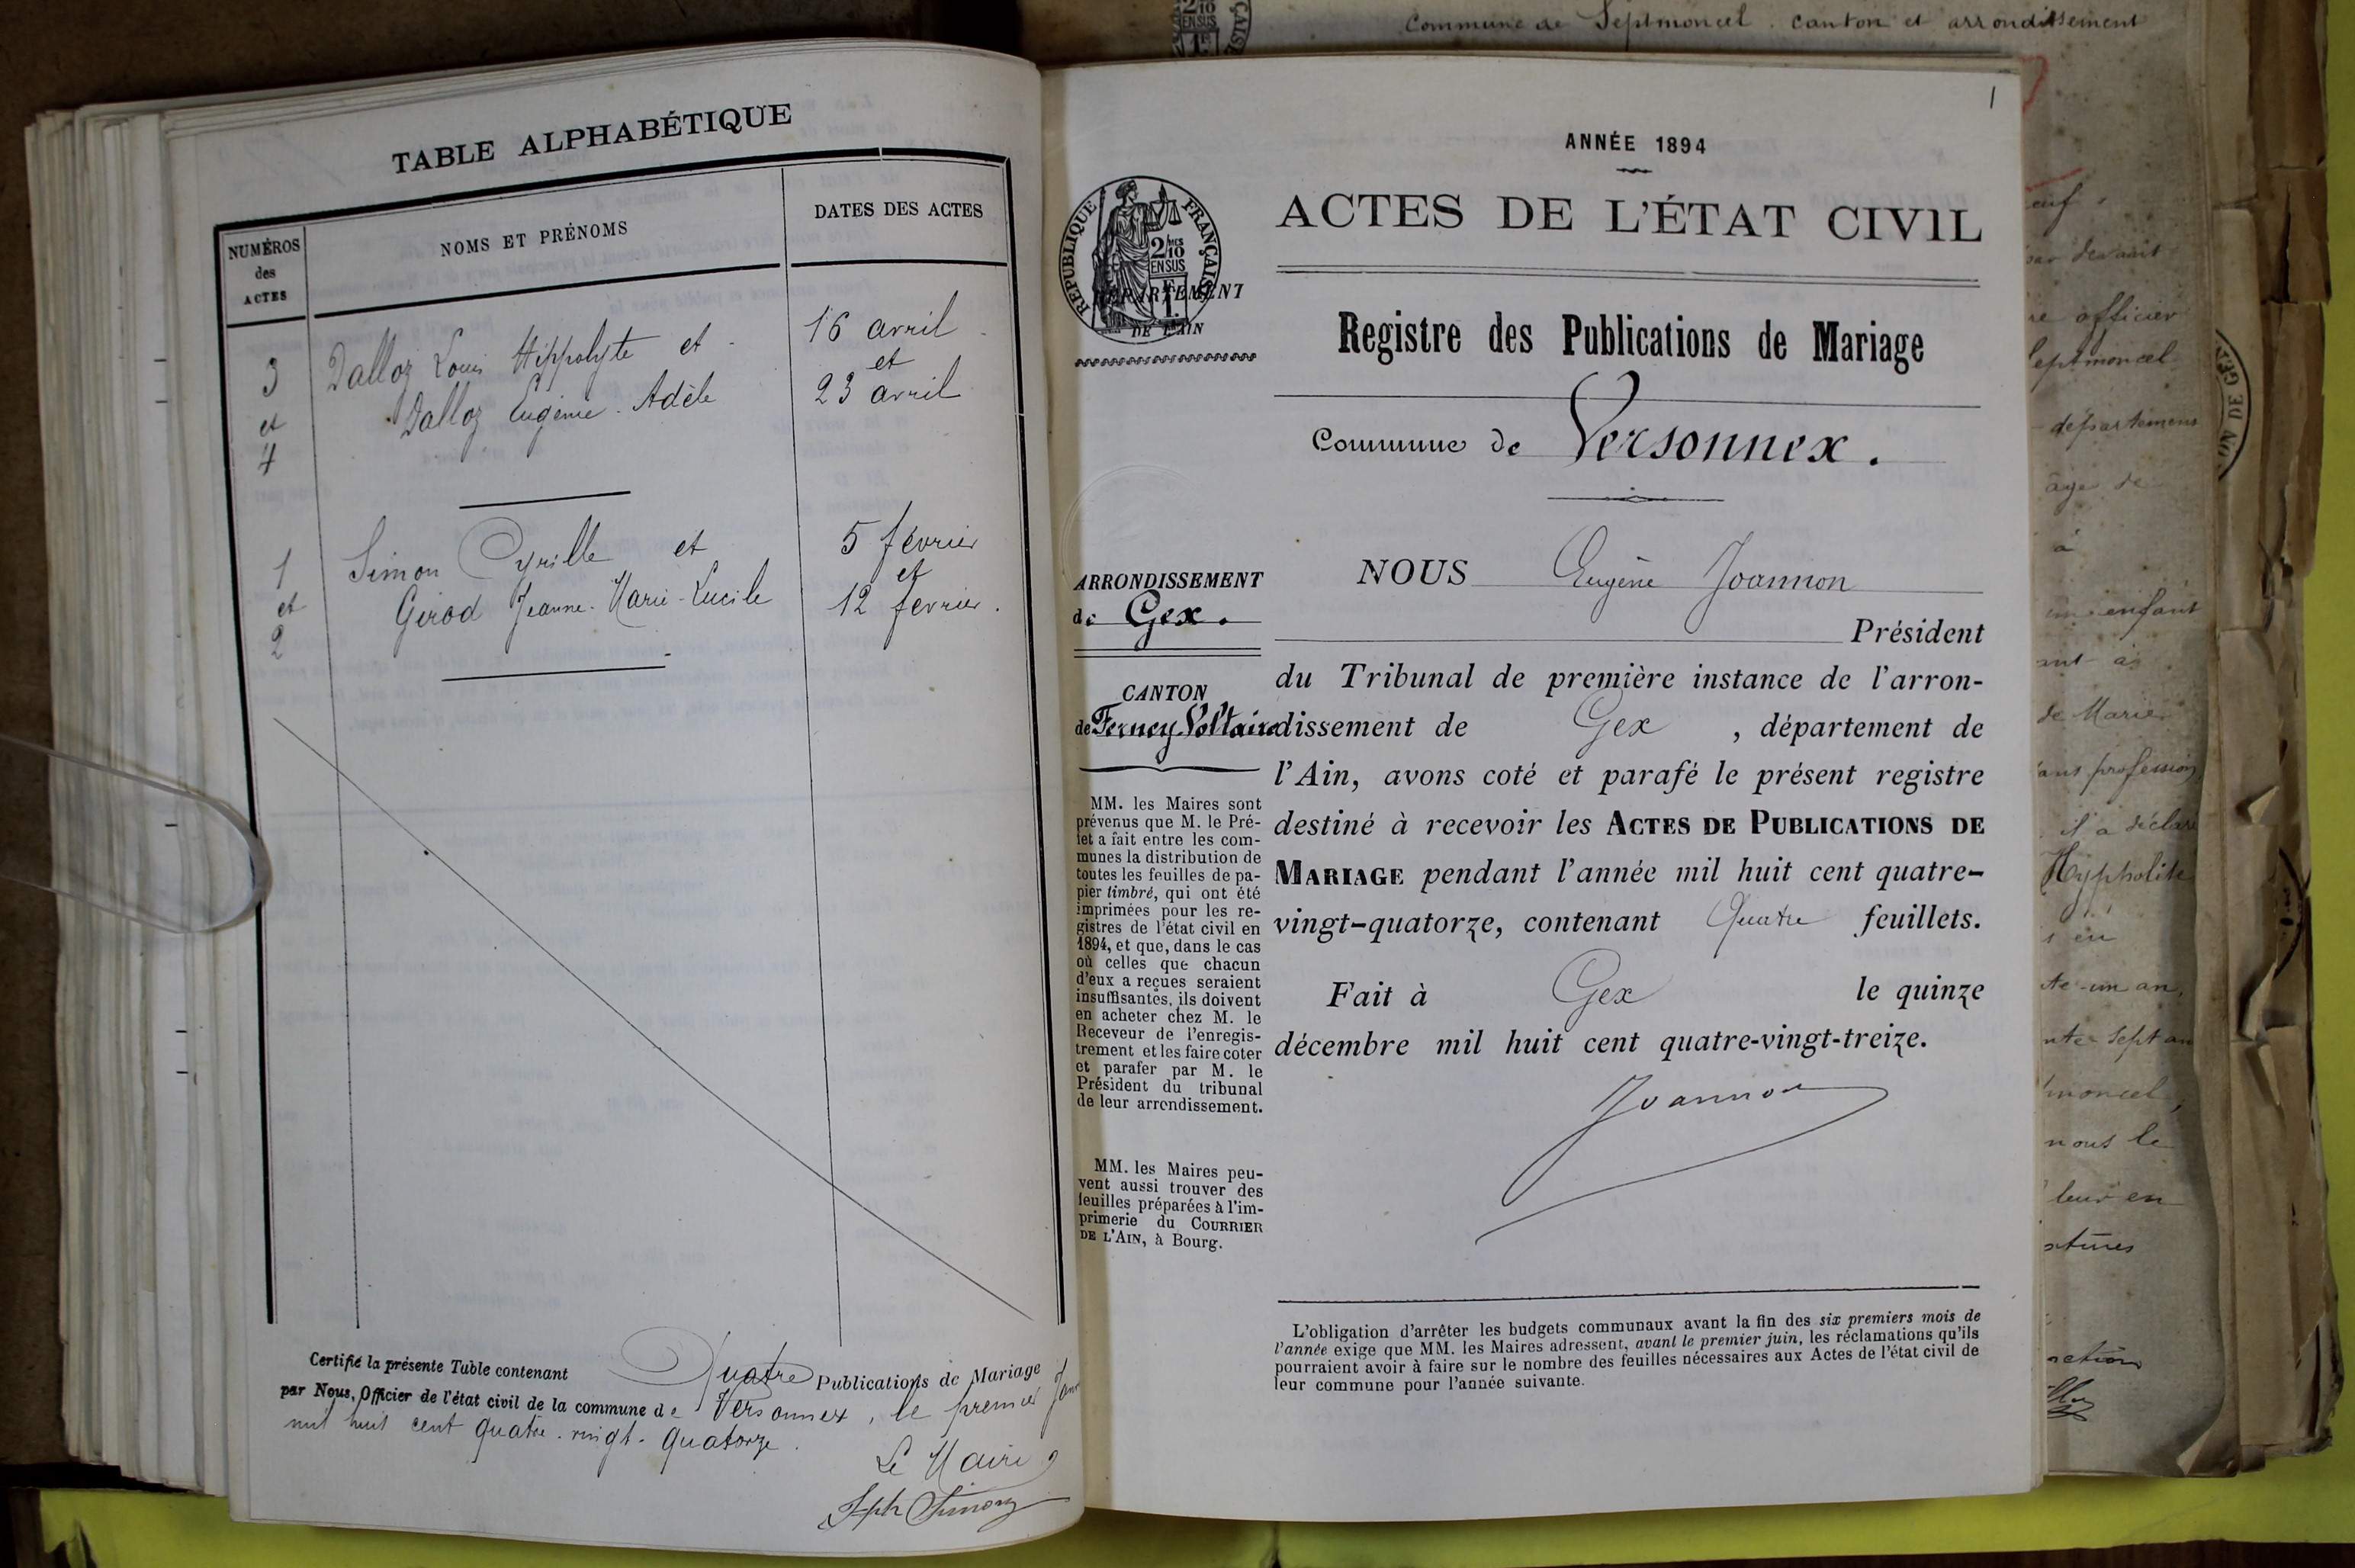 Commune de Septmoncel. canton et arrondissement
TABLE ALPHABÉTIQUE
NUMÉROS
des
ACTES
NOMS ET PRÉNOMS
DATES DES ACTES
3
et
4
Dalloz Louis Hippolyte et
Dalloz Eugénie-Adèle
16 avril
et
23 avril
1
et
2
Simon Cyrille et
Girod Jeanne-Marie-Lucile
5 février
et
12 février.
Certifié la présente Table contenant Quatre Publications de Mariage
par Nous, Officier de l'état civil de la commune de Versonnex, le premier Janv
mil huit cent quatre-vingt-quatorze.
Le Maire,
Jph Simon
1
ANNÉE 1894
ACTES DE L'ÉTAT CIVIL
RÉPUBLIQUE FRANÇAISE
2/10
EN SUS
DÉPARTEMENT
DE L'AIN
Registre des Publications de Mariage
Commune de Versonnex.
ARRONDISSEMENT
de Gex.
CANTON
de Ferney-Voltaire
MM. les Maires sont
prévenus que M. le Pré-
fet a fait entre les com-
munes la distribution de
toutes les feuilles de pa-
pier timbré, qui ont été
imprimées pour les re-
gistres de l'état civil en
1894, et que, dans le cas
où celles que chacun
d'eux a reçues seraient
insuffisantes, ils doivent
en acheter chez M. le
Receveur de l'enregis-
trement et les faire coter
et parafer par M. le
Président du tribunal
de leur arrondissement.
MM. les Maires peu-
vent aussi trouver des
feuilles préparées à l'im-
primerie du COURRIER
DE L'AIN, à Bourg.
NOUS Eugène Joannon
Président
du Tribunal de première instance de l'arron-
dissement de Gex, département de
l'Ain, avons coté et parafé le présent registre
destiné à recevoir les ACTES DE PUBLICATIONS DE
MARIAGE pendant l'année mil huit cent quatre-
vingt-quatorze, contenant Quatre feuillets.
Fait à Gex le quinze
décembre mil huit cent quatre-vingt-treize.
Joannon
L'obligation d'arrêter les budgets communaux avant la fin des six premiers mois de
l'année exige que MM. les Maires adressent, avant le premier juin, les réclamations qu'ils
pourraient avoir à faire sur le nombre des feuilles nécessaires aux Actes de l'état civil de
leur commune pour l'année suivante.
devant
officier
eptmoncel
département
âge de
à
enfant
de Marie
profession
il a déclaré
Hyppolite
un an,
sept an
moncel,
nous le
leur en